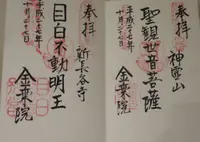 奉拝
神霊山
聖観世音菩薩
金乗院
平成二十七年
十月二十七日
奉拝
新長谷寺
目白不動明王
金乗院
平成二十七年
十月二十七日